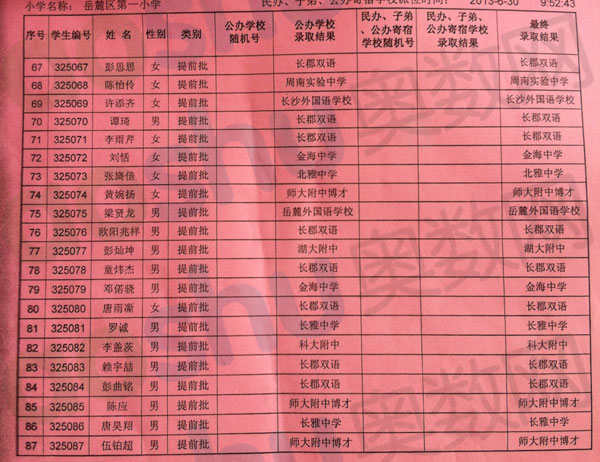 小学名称: 岳麓区第一小学 民办、子弟、公办寄宿学校派位时间: 2013-6-30 9:52:43
序号 学生编号 姓名 性别 类别 公办学校随机号 公办学校录取结果 民办、子弟、公办寄宿学校随机号 民办、子弟、公办寄宿录取结果 最终录取结果
67 325067 彭思思 女 提前批 长郡双语 长郡双语
68 325068 陈怡伶 女 提前批 周南实验中学 周南实验中学
69 325069 许添齐 女 提前批 长沙外国语学校 长沙外国语学校
70 325070 谭琦 男 提前批 长郡双语 长郡双语
71 325071 李雨芹 女 提前批 长郡双语 长郡双语
72 325072 刘恬 女 提前批 金海中学 金海中学
73 325073 张旖倍 女 提前批 北雅中学 北雅中学
74 325074 黄婉扬 女 提前批 师大附中博才 师大附中博才
75 325075 梁贤龙 男 提前批 岳麓外国语学校 岳麓外国语学校
76 325076 欧阳兆祥 男 提前批 长郡双语 长郡双语
77 325077 彭灿坤 男 提前批 湖大附中 湖大附中
78 325078 童炜杰 男 提前批 长郡双语 长郡双语
79 325079 邓偌骁 男 提前批 金海中学 金海中学
80 325080 唐雨凘 女 提前批 长郡双语 长郡双语
81 325081 罗诚 男 提前批 长雅中学 长雅中学
82 325082 李盖茨 男 提前批 科大附中 科大附中
83 325083 赖宇喆 男 提前批 长郡双语 长郡双语
84 325084 彭曲铭 男 提前批 长郡双语 长郡双语
85 325085 陈应 男 提前批 师大附中博才 师大附中博才
86 325086 唐昊翔 男 提前批 长雅中学 长雅中学
87 325087 伍铂超 男 提前批 师大附中博才 师大附中博才
奥数网